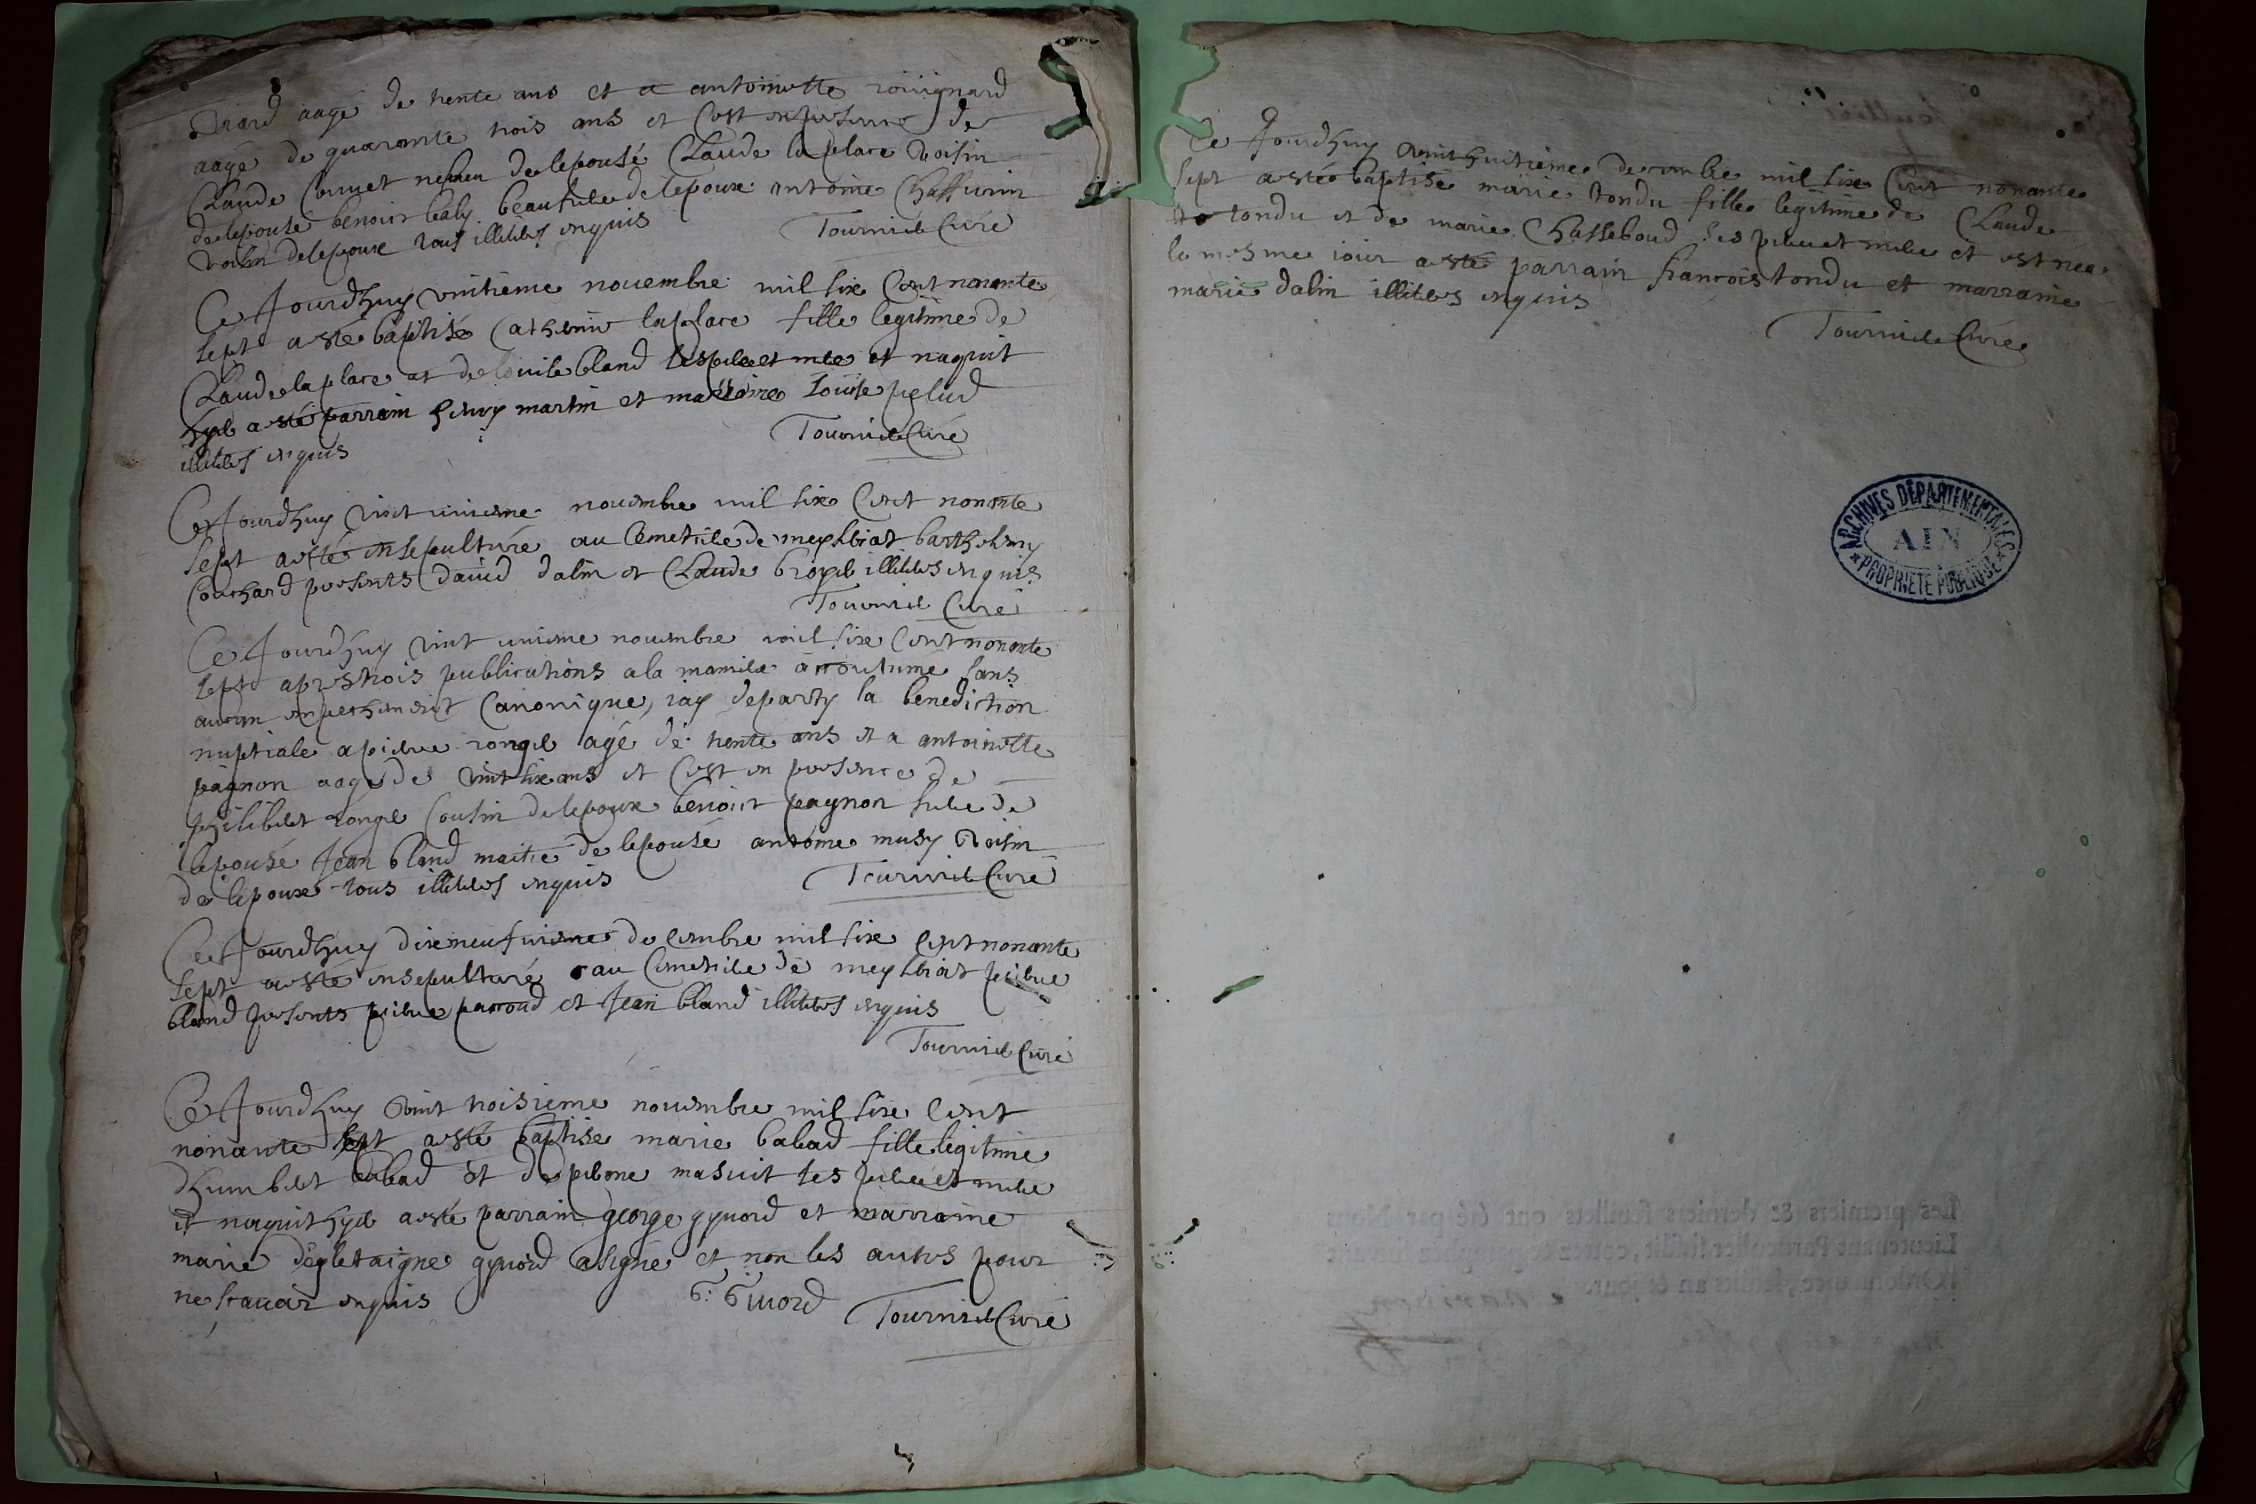 aagé de trente ans et a antoinette
aagé de quarante trois ans et c'est en presence de
Claude neveu de lepousé Claude la place voisin
de lepousé benoist baby beaufrere de lepoux antoine
voisin de lepoux tous illiteres enquis Tournier Curé
Ce Jourdhuy vintieme novembre mil six cent nonante
sept a esté baptisé Catherine laplace fille legitime de
Claude la place et de bland ses pere et mere et naquit
hyer a esté parrain henry martin et marraine Louise pelud
illiteres enquis Tournier Curé
Ce Jourdhuy vint unieme novembre mil six cent nonante
sept a esté ensepulturé au Cemetiere de meyseriat barthelemy
Couchard presents david dalin et Claude broyer illiteres enquis
Tournier Curé
Ce Jourdhuy vint unieme novembre mil six cent nonante
sept apres trois publications a la maniere accoutumé sans
aucun empechement Canonique, jay departy la benediction
nuptiale a pierre ronger agé de trente ans et a antoinette
pagnon aagé de vint six ans et c'est en presence de
philibert ronger Cousin de lepoux benoist pagnon frere de
lepousé Jean bland maitre de lepousé antoine musy voisin
de lepoux tous illiteres enquis Tournier Curé
Ce Jourdhuy dixneufvieme decembre mil six cent nonante
sept a esté ensepulturé au Cemetiere de meyseriat pierre
bland presents pierre parroud et Jean bland illiteres enquis
Tournier Curé
Ce Jourdhuy vint troisieme novembre mil six cent
nonante sept a esté baptise marie babad fille legitime
dhumbert babad et de perone masuit ses pere et mere
et naquit hyer a esté parrain george gynord et marraine
marie degletaigne gynord a signé et non les autres pour
ne scavoir enquis G: Ginord Tournier Curé
Ce Jourdhuy vint huitieme decembre mil six Cent nonante
sept a esté baptisé marie tondu fille legitime de Claude
tondu et de marie Chasseboud ses pere et mere et est nee
le mesme iour a esté parrain francois tondu et marraine
marie dalin illiteres enquis
Tournier Curé
ARCHIVES DÉPARTEMENTALES
AIN
PROPRIÉTÉ PUBLIQUE